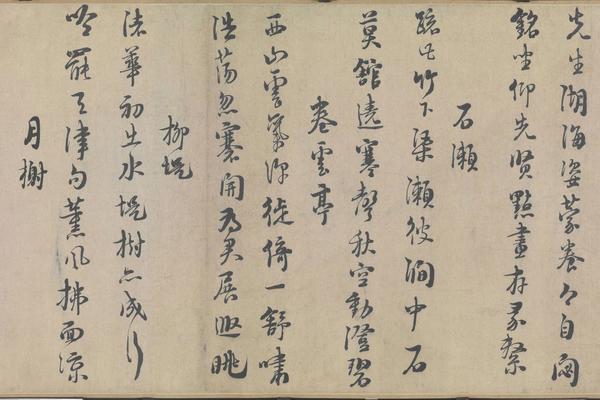 先生湖海姿蒙養今自閟
銘坐仰先賢點畫存彖繫
石瀨
疏此竹下渠瀨彼澗中石
莫館遶寒聲秋空動澄碧
卷雲亭
西山雲氣深徙倚一舒嘯
浩蕩忽褰開為君展遐眺
柳堤
渚華初出水堤樹亦成行
吟罷天津句薰風拂面涼
月榭